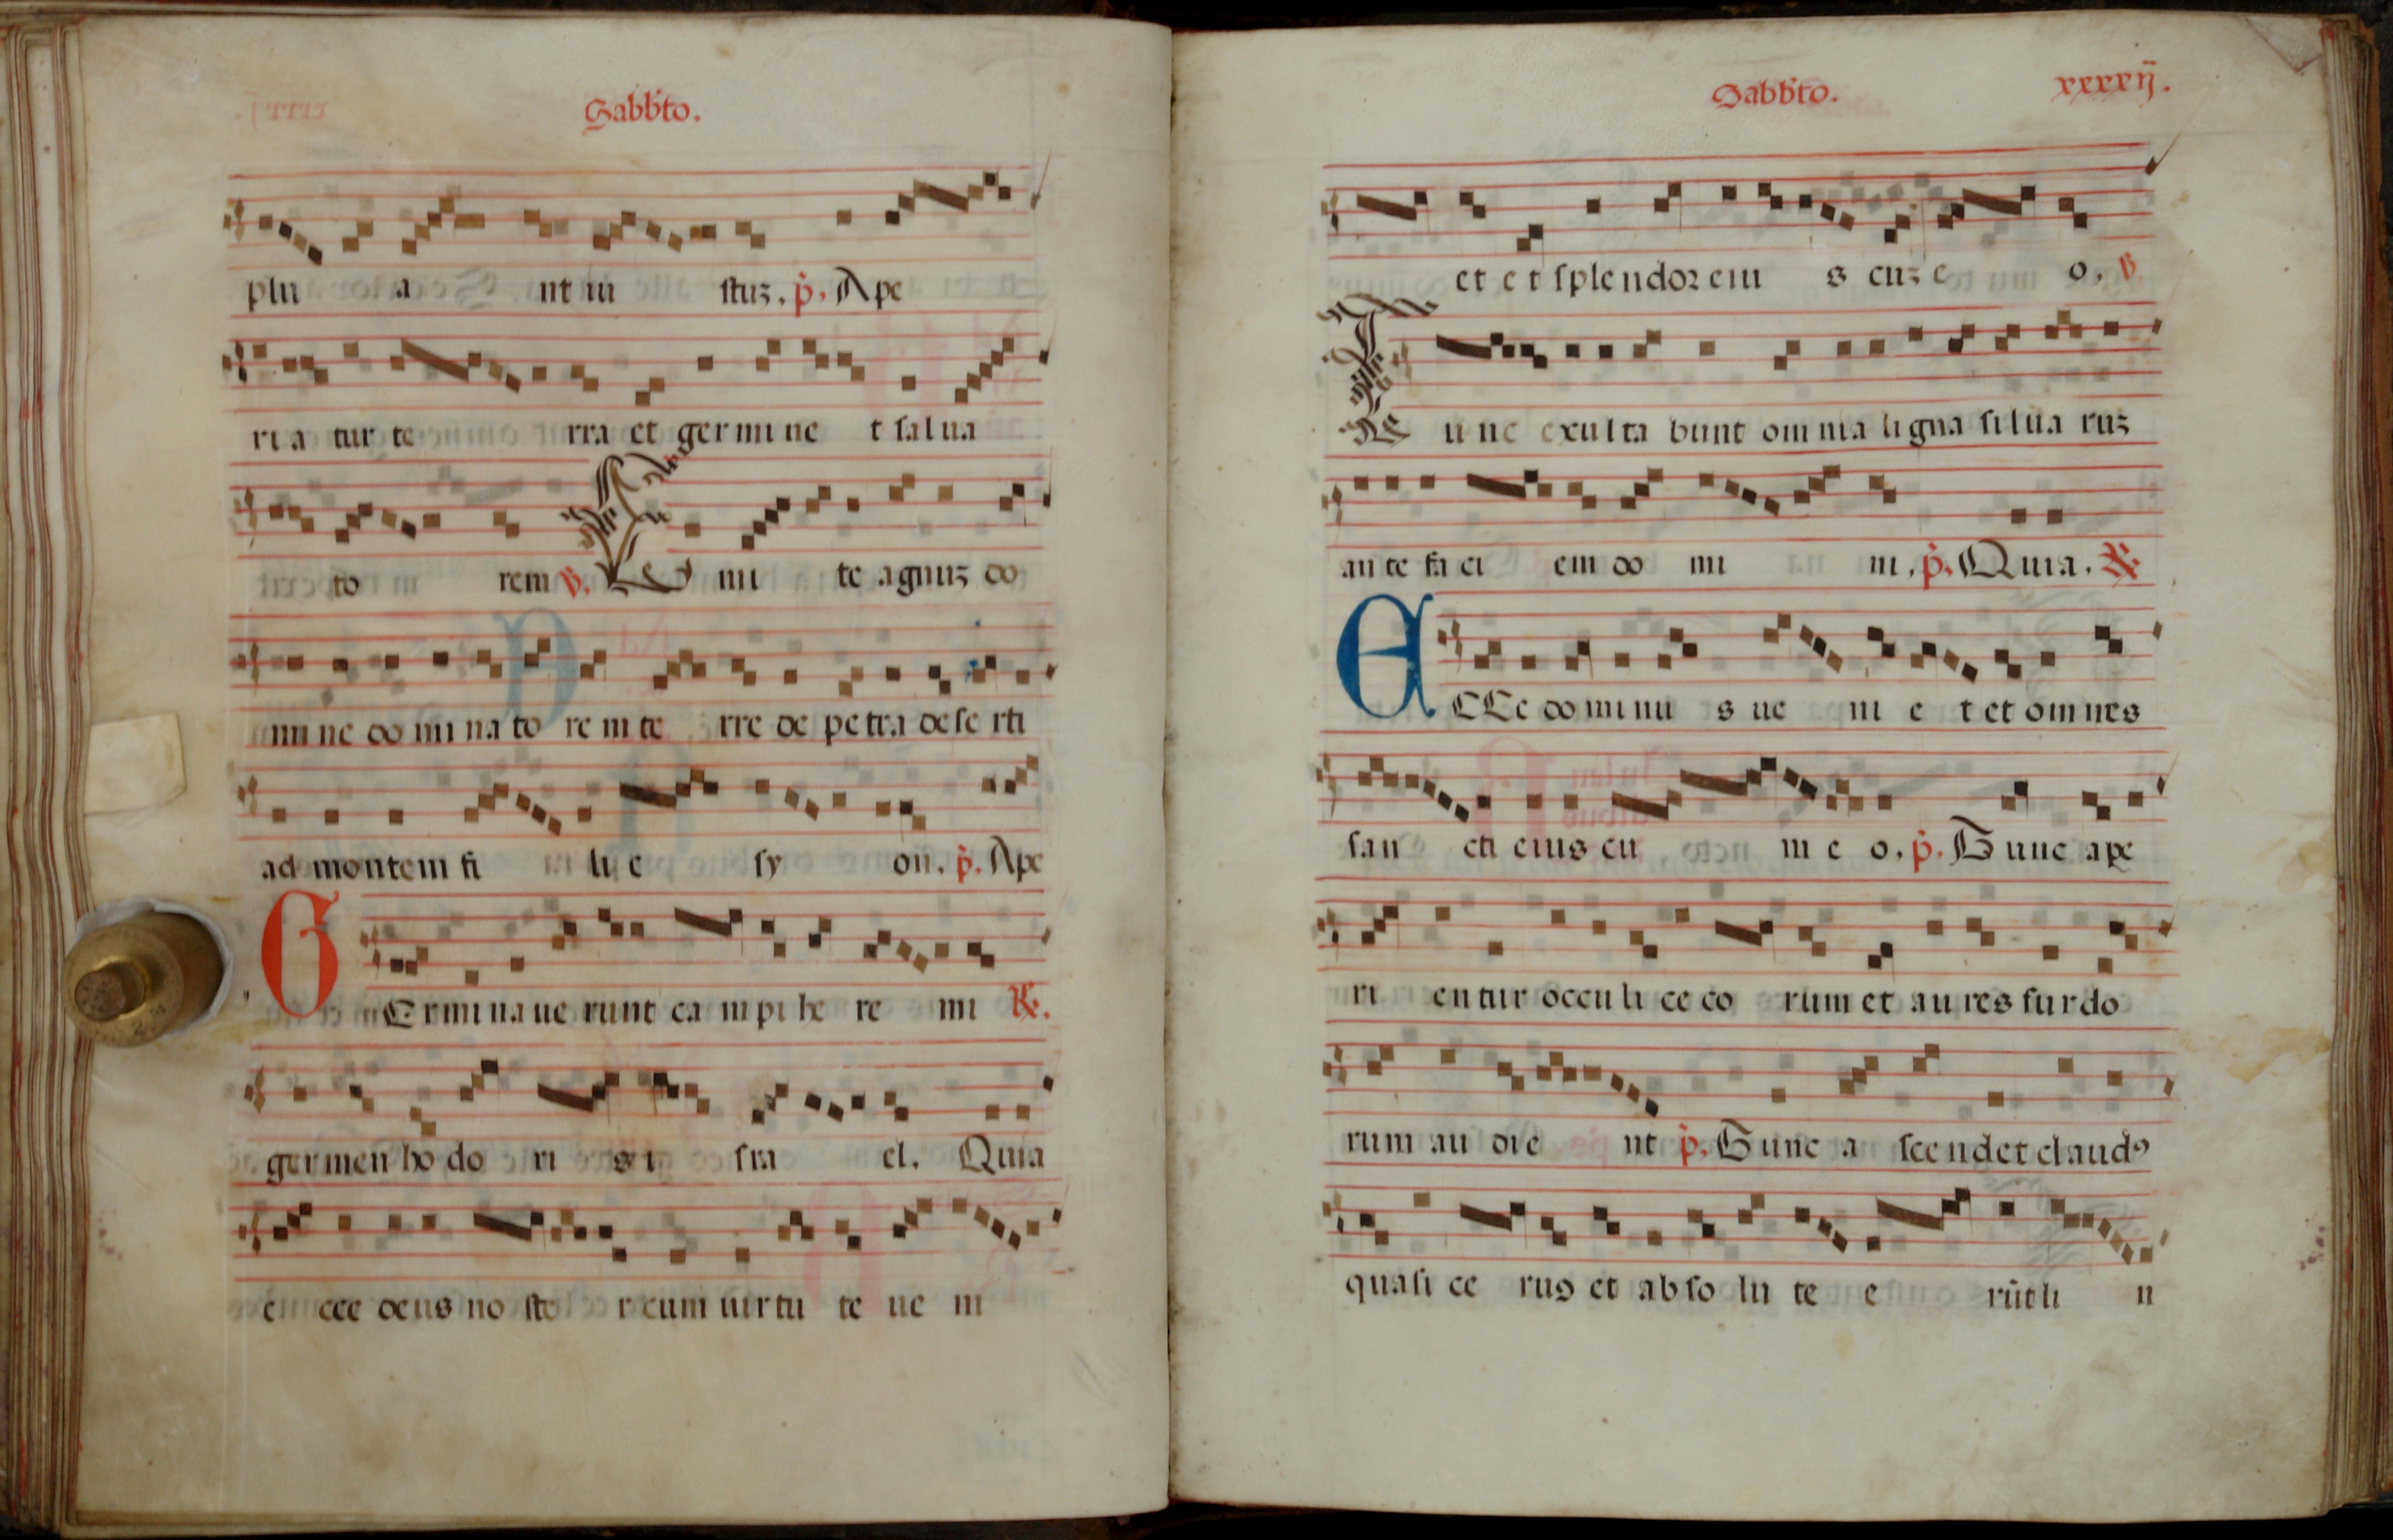 Sabbto.
plu a nt iu stuz. p. Ape
ri a tur te rra et ger mi ne t sal ua
to rem V. E mi te agnuz do
mi ne do mi na to re m te rre de pe tra de se rti
ad montem fi li e sy on. p. Ape
G Ermi na ue runt ca mpi he re mi R.
germen ho do ri s i sra el. Quia
e cce deus no ste r cum uirtu te ue ni
Sabbto. xxxxij.
et e t splendorem s cuz e o. V
T unc exulta bunt omnia ligna silua ruz
an te fa ci em do mi ni. p. Quia. R.
E CCe do minu s ue ni e t et omnes
san cti eius cu m e o. p. Tunc ape
ri entur occuli ce co rum et au res surdo
rum au die nt p. Tunc a scendet claud9
quasi ce rus et ab so lu te e rūt li n